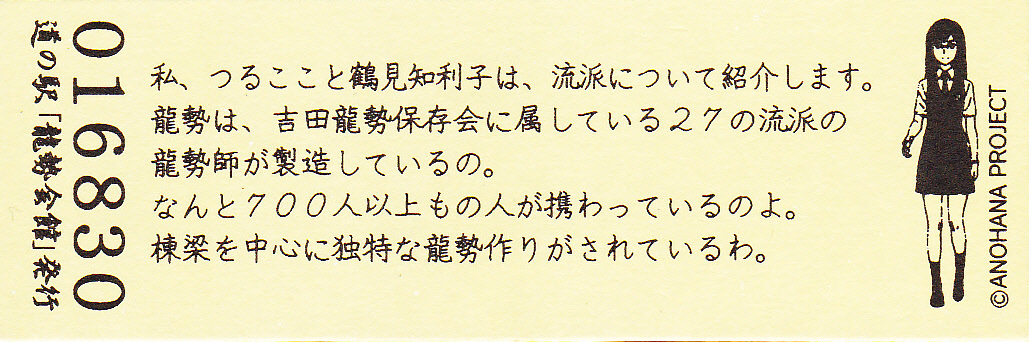 016830
道の駅「龍勢会館」発行
私、つるここと鶴見知利子は、流派について紹介します。
龍勢は、吉田龍勢保存会に属している２７の流派の
龍勢師が製造しているの。
なんと７００人以上もの人が携わっているのよ。
棟梁を中心に独特な龍勢作りがされているわ。
©ANOHANA PROJECT